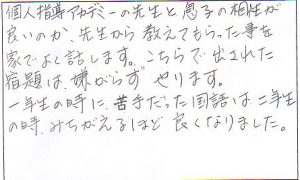 個人指導アカデミーの先生と息子の相性が
良いのか、先生から教えてもらった事を
家でよく話します。こちらで出された
宿題は、嫌がらずやります。
一年生の時に、苦手だった国語は二年生
の時、みちがえるほど良くなりました。